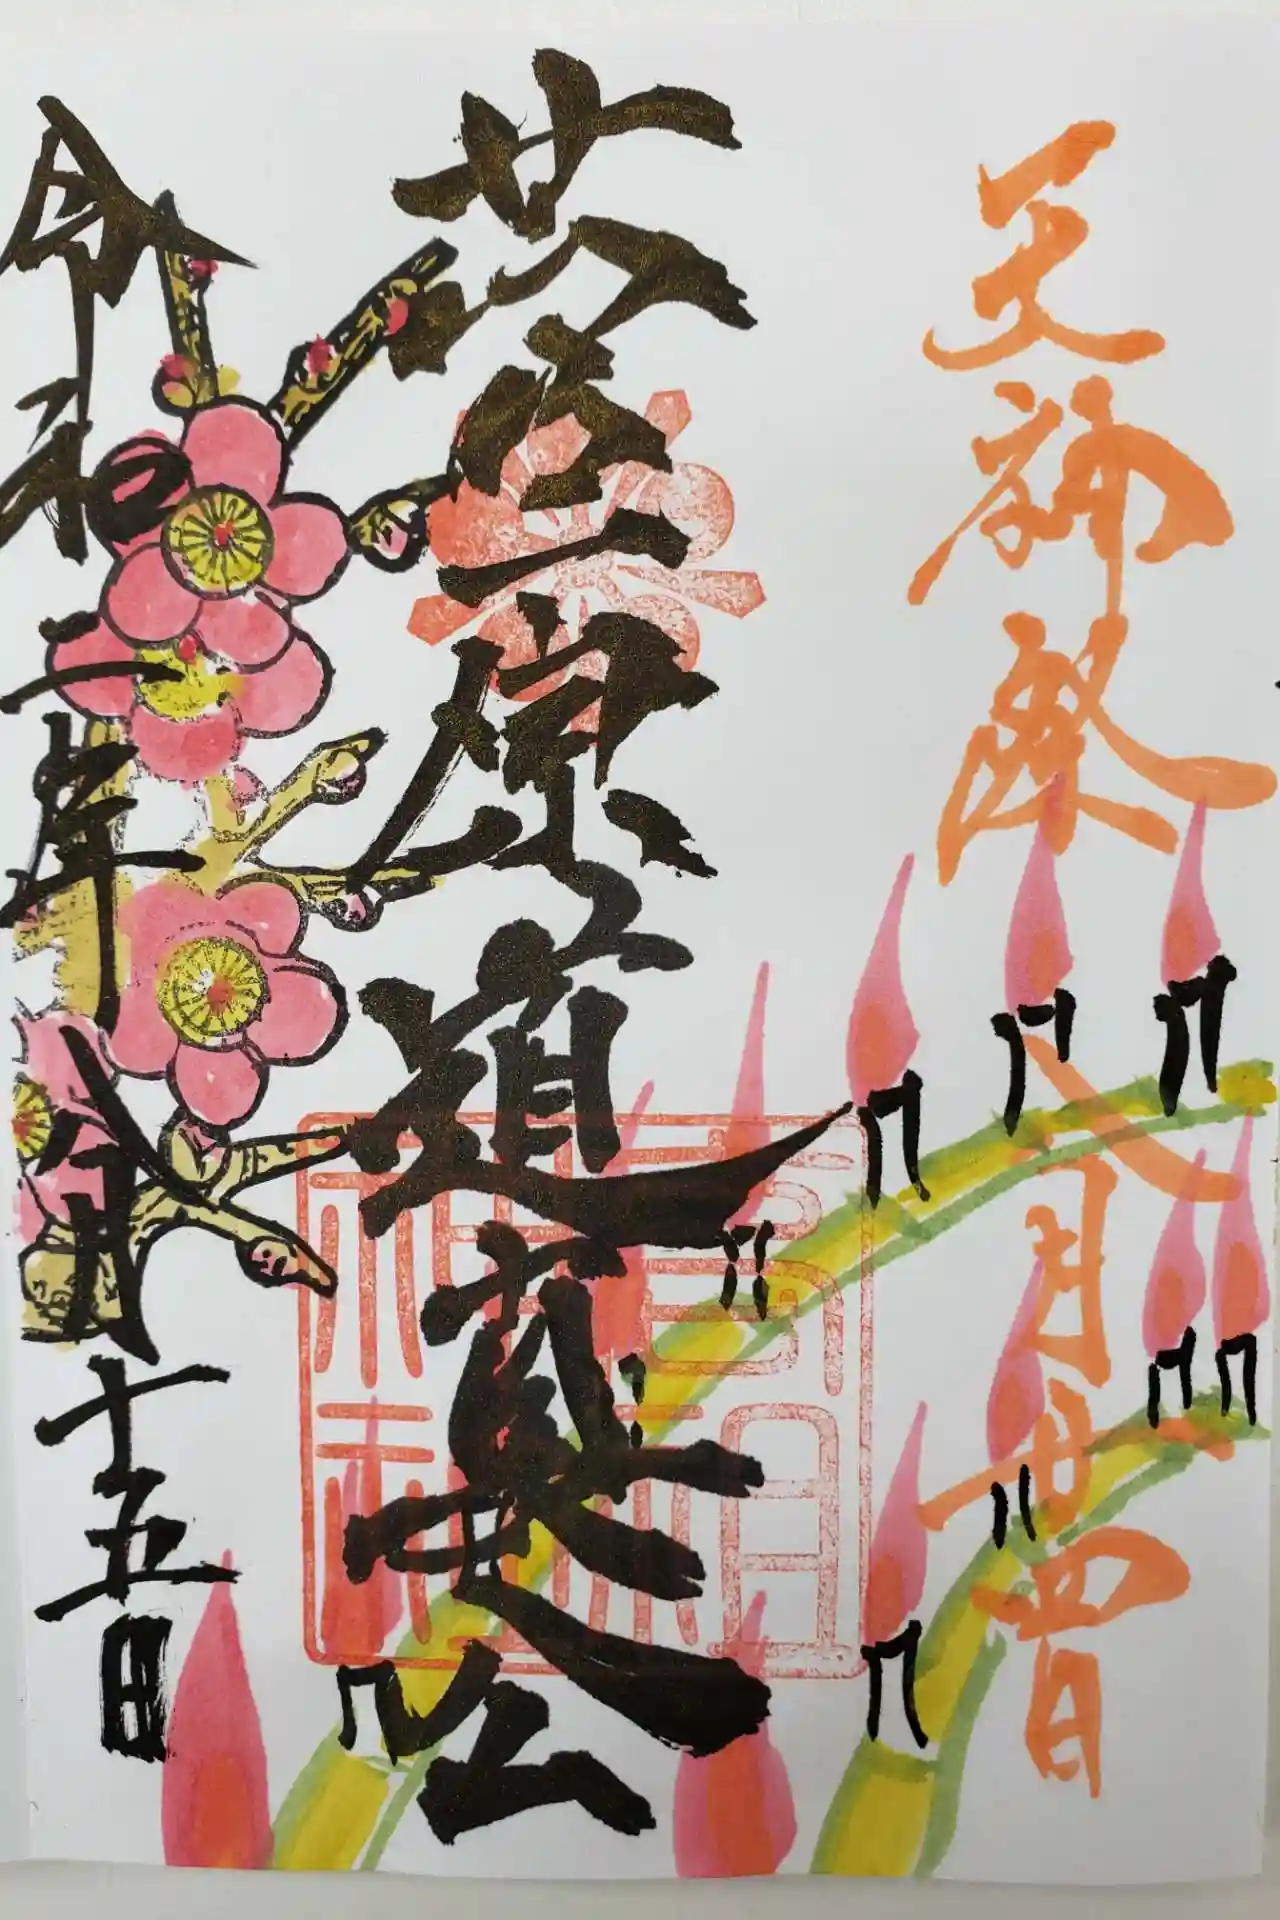 天神祭
八月廿四日
菅原道真公
令和二年八月十五日